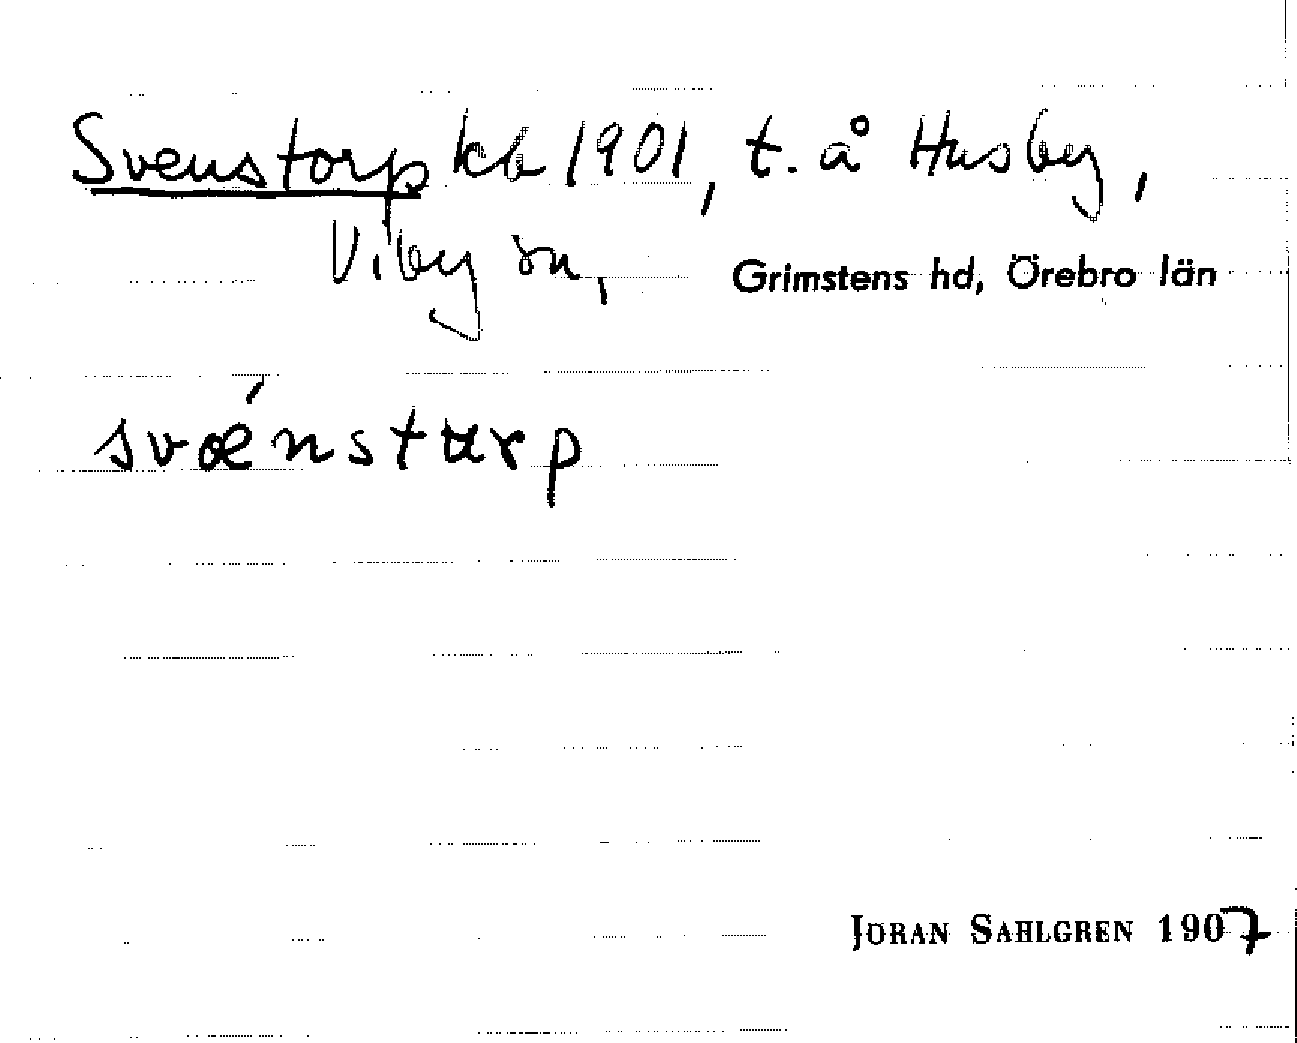 Svenstorp kb 1901, t. å Husby,
Viby sn, Grimstens hd, Örebro län
svǽnstarp
JÖRAN SAHLGREN 1907